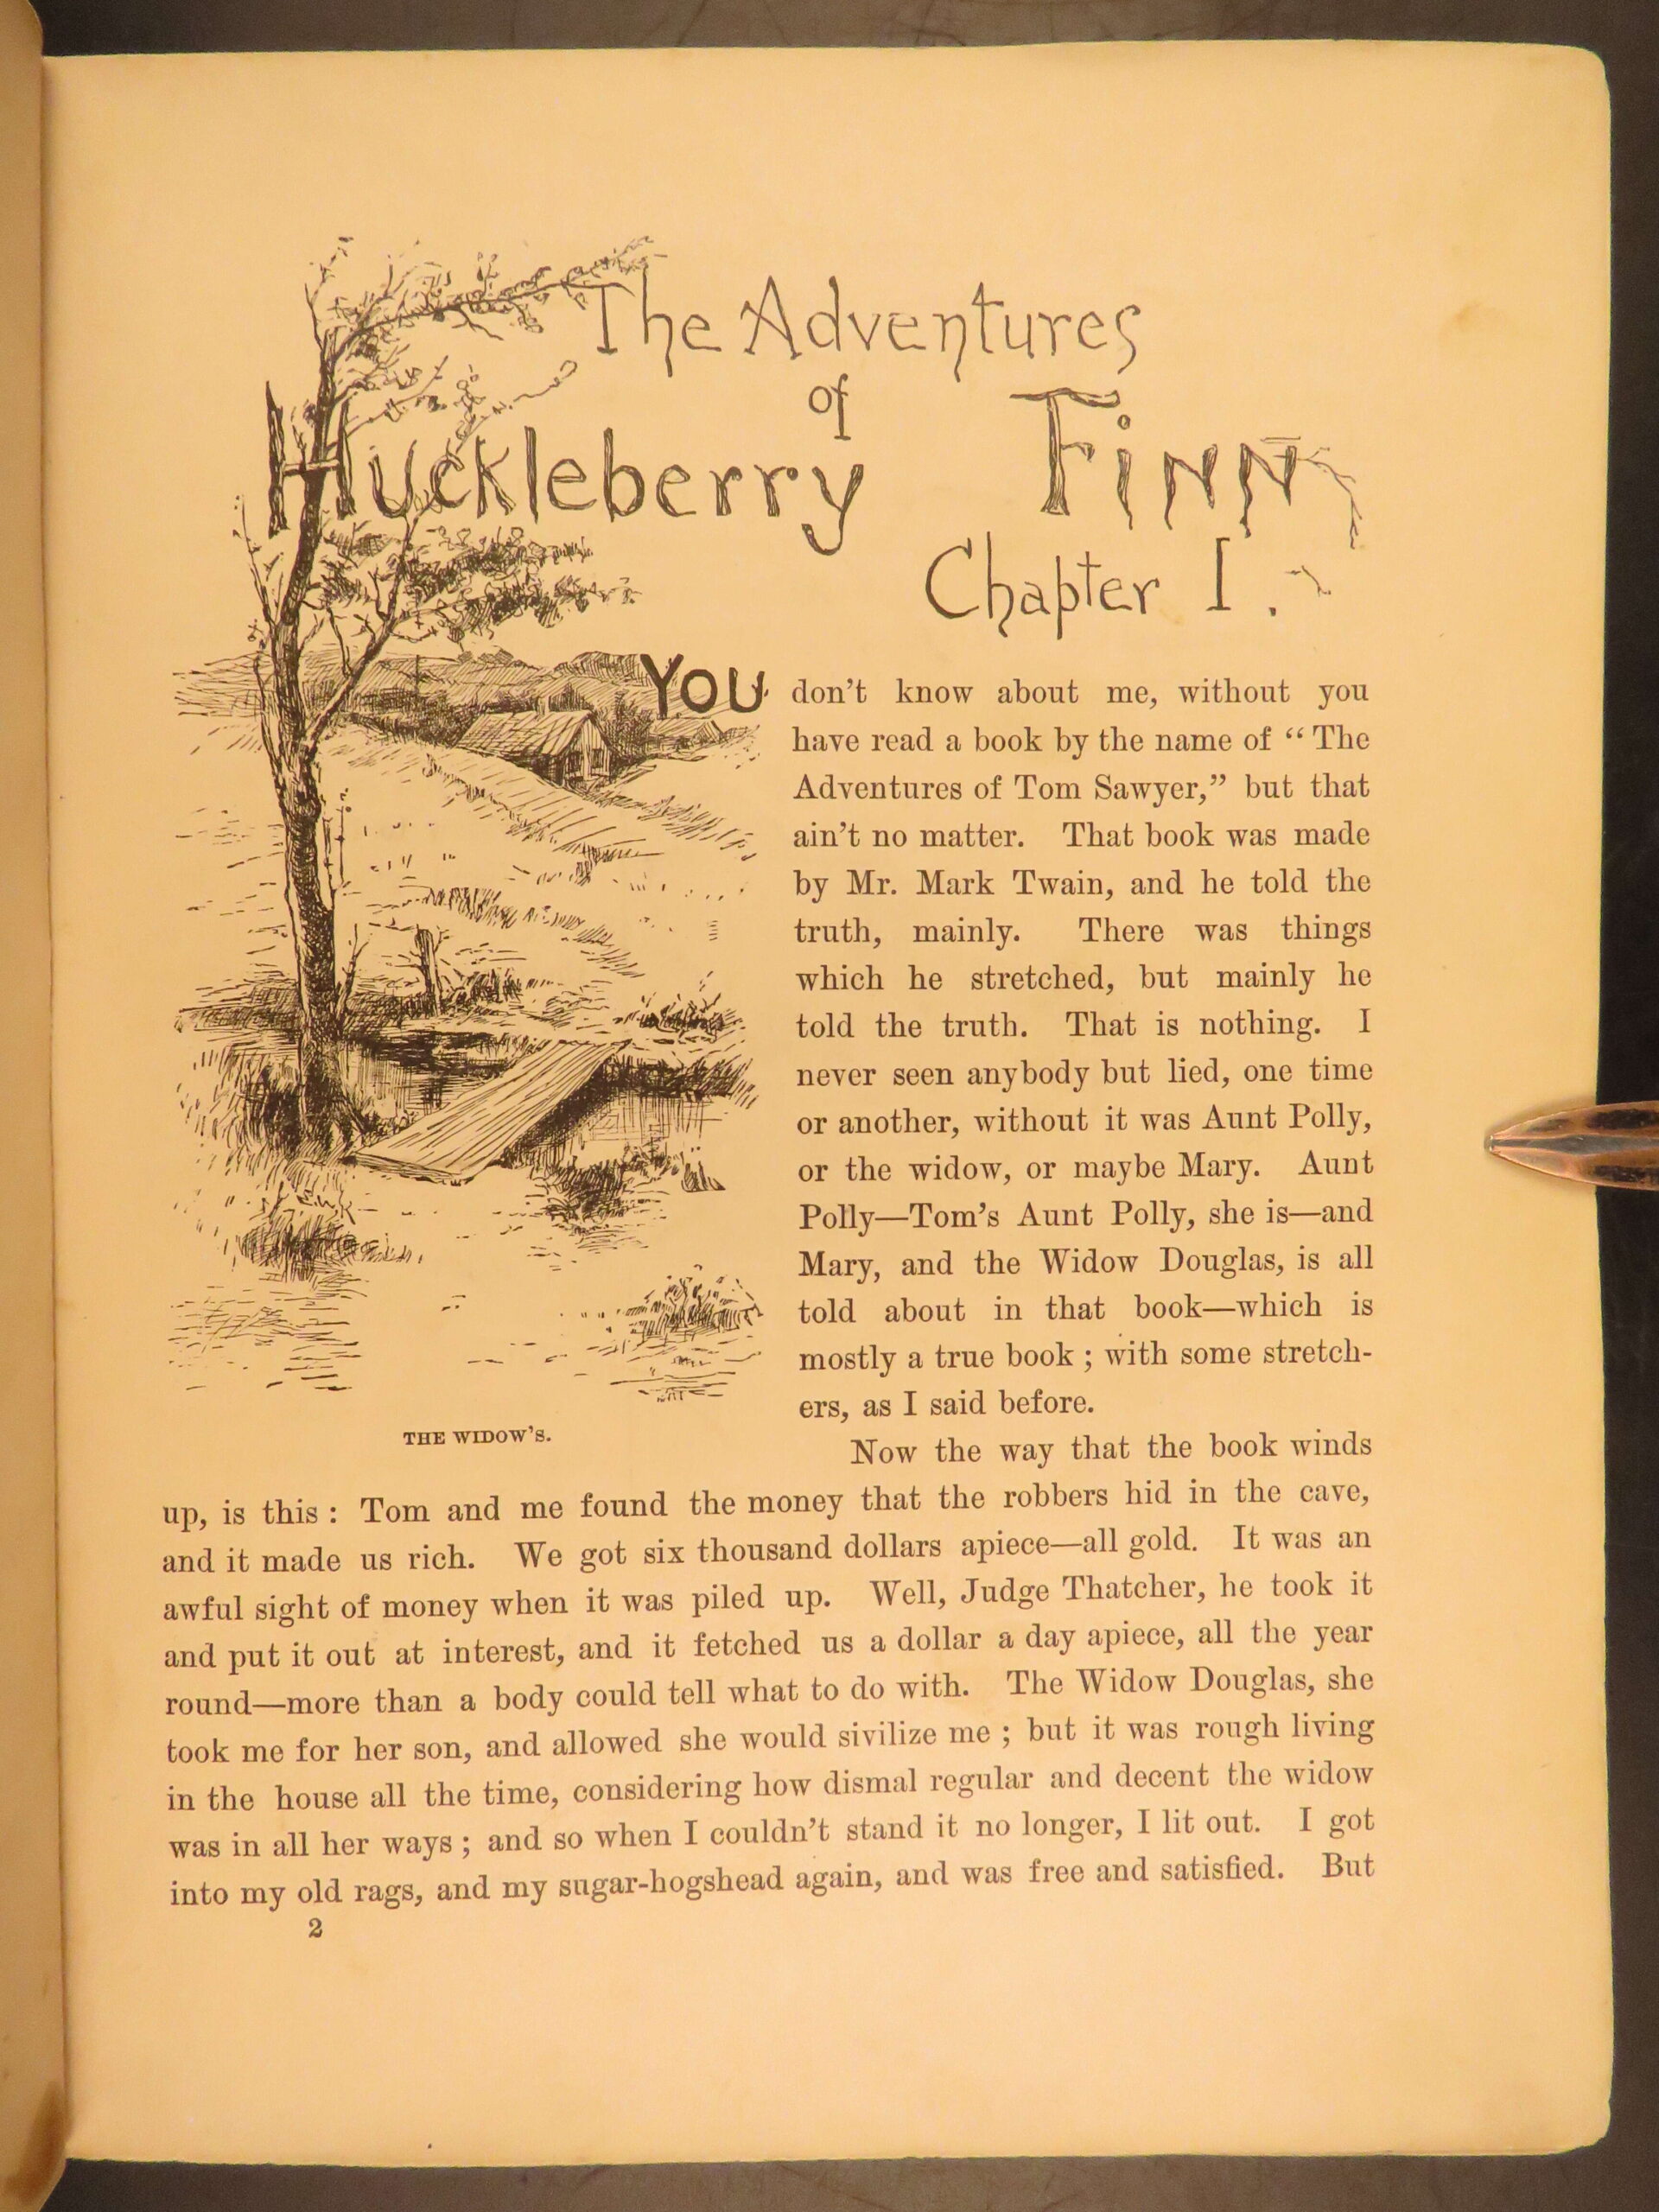 The Adventures
of
Huckleberry Finn
Chapter I.
YOU don't know about me, without you
have read a book by the name of “ The
Adventures of Tom Sawyer,” but that
ain't no matter. That book was made
by Mr. Mark Twain, and he told the
truth, mainly. There was things
which he stretched, but mainly he
told the truth. That is nothing. I
never seen anybody but lied, one time
or another, without it was Aunt Polly,
or the widow, or maybe Mary. Aunt
Polly—Tom's Aunt Polly, she is—and
Mary, and the Widow Douglas, is all
told about in that book—which is
mostly a true book ; with some stretch-
ers, as I said before.
THE WIDOW'S.
Now the way that the book winds
up, is this : Tom and me found the money that the robbers hid in the cave,
and it made us rich. We got six thousand dollars apiece—all gold. It was an
awful sight of money when it was piled up. Well, Judge Thatcher, he took it
and put it out at interest, and it fetched us a dollar a day apiece, all the year
round—more than a body could tell what to do with. The Widow Douglas, she
took me for her son, and allowed she would sivilize me ; but it was rough living
in the house all the time, considering how dismal regular and decent the widow
was in all her ways ; and so when I couldn't stand it no longer, I lit out. I got
into my old rags, and my sugar-hogshead again, and was free and satisfied. But
2